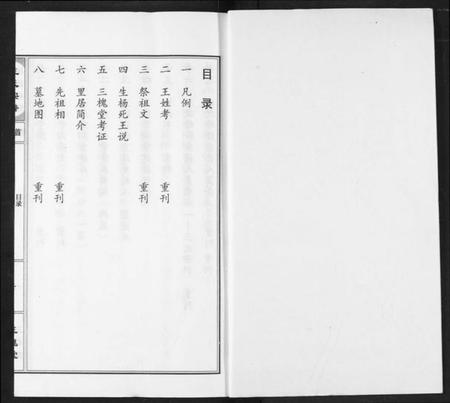 目录
一 凡例
二 王姓考 重刊
三 祭祖文 重刊
四 生杨死王说
五 三槐堂考证
六 里居简介
七 先祖相 重刊
八 墓地图 重刊
首
目录
三槐堂